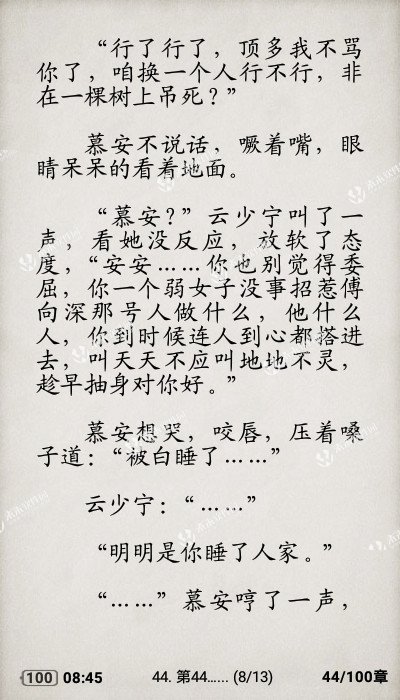 “行了行了，顶多我不骂
你了，咱换一个人行不行，非
在一棵树上吊死？”
慕安不说话，噘着嘴，眼
睛呆呆的看着地面。
“慕安？”云少宁叫了一
声，看她没反应，放软了态
度，“安安……你也别觉得委
屈，你一个弱女子没事招惹傅
向深那号人做什么，他什么
人，你到时候连人到心都搭进
去，叫天天不应叫地地不灵，
趁早抽身对你好。”
慕安想哭，咬唇，压着嗓
子道：“被白睡了……”
云少宁：“……”
“明明是你睡了人家。”
“……”慕安哼了一声，
100 08:45 44. 第44…... (8/13) 44/100章